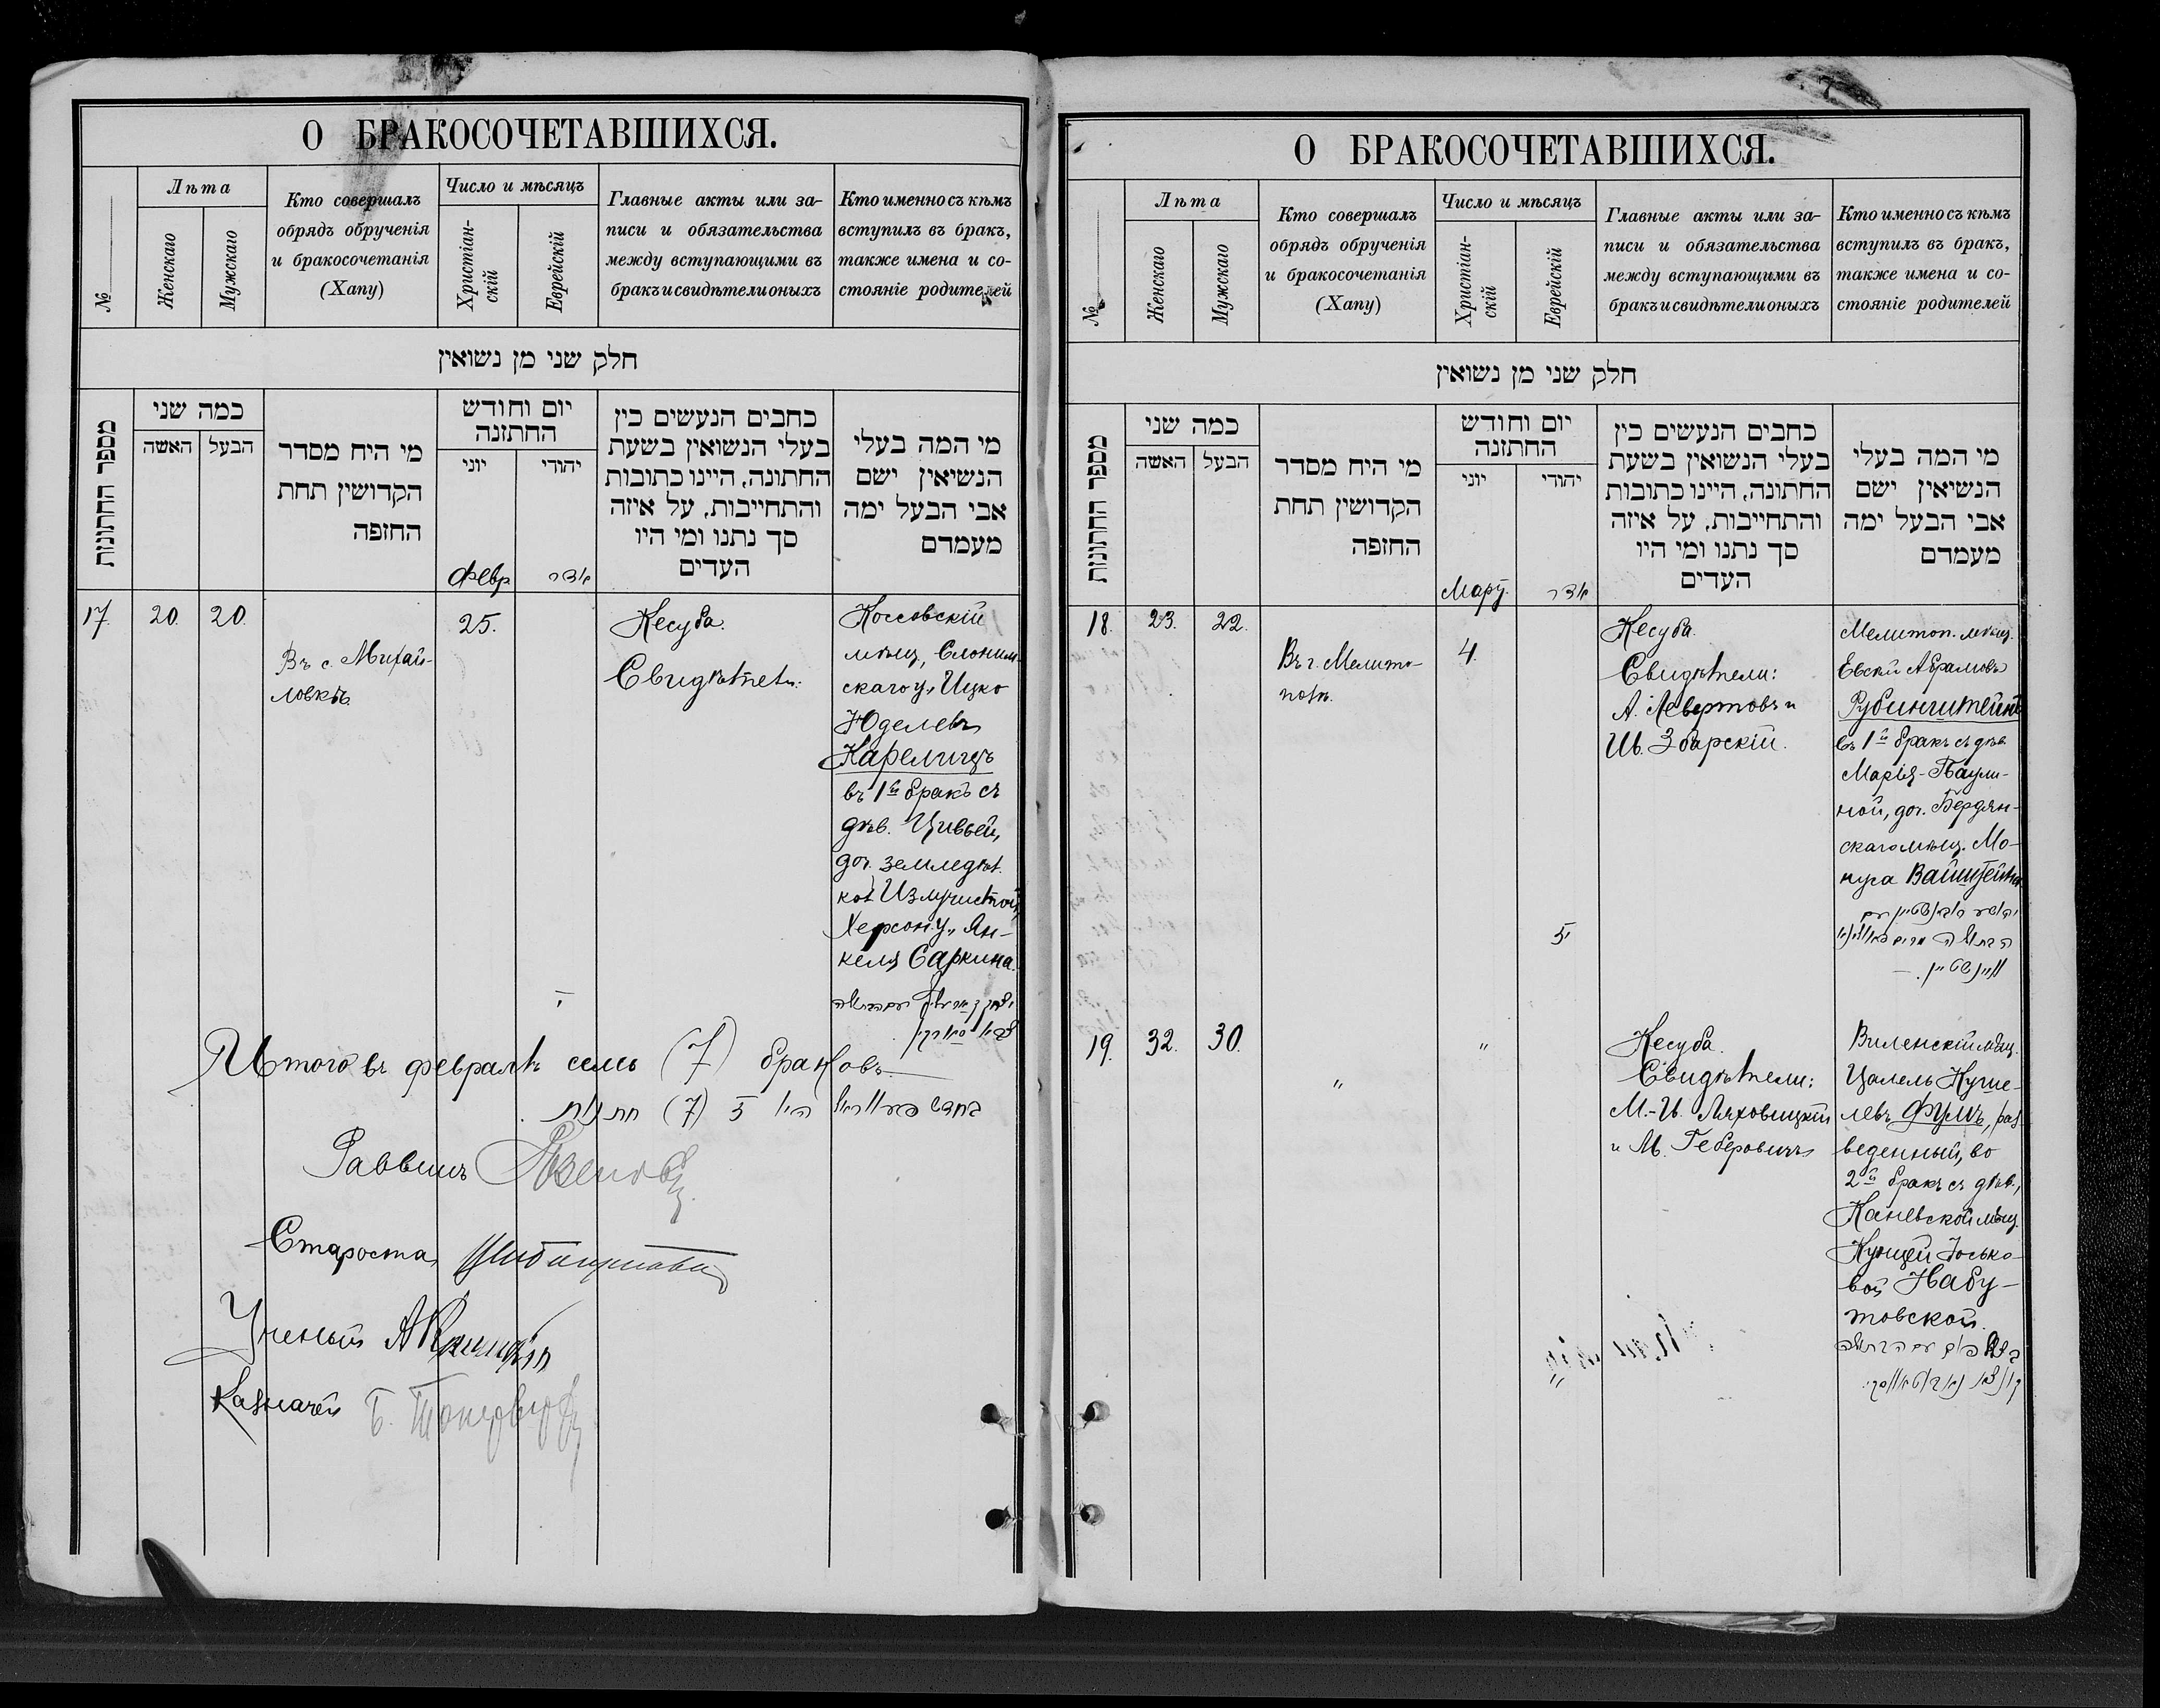 О БРАКОСОЧЕТАВШИХСЯ.
№
Лѣта
Женскаго
Мужскаго
Кто совершалъ
обрядъ обрученія
и бракосочетанія
(Хапу)
Число и мѣсяцъ
Христіан-
скій
Еврейскій
Главные акты или за-
писи и обязательства
между вступающими въ
бракъ и свидѣтели оныхъ
Кто именно съ кѣмъ
вступилъ въ бракъ,
также имена и со-
стояніе родителей
חלק שני מן נשואין
מספר החתונות
כמה שני
האשה
הבעל
מי היח מסדר
הקדושין תחת
החזפה
יום וחודש
החתזנה
יוני
יהודי
февр
אדר
כחבים הנעשים כין
בעלי הנשואין בשעת
החתונה, היינו כתובות
והתחייבות, על איזה
סך נתנו ומי היו
העדים
מי המה בעלי
הנשיאין ישם
אבי הבעל ימה
מעמדם
17.
20.
20.
Въ с. Михай-
ловкѣ.
25.
Кесуба.
Свидѣтели:
Коссовскій
мѣщ., Слоним-
скаго у., Ицко
Юделевъ
Карелицъ
въ 1й бракъ съ
дѣв. Цивьей,
доч. земледѣл.
кол. Излучистой,
Херсон. у., Ян-
келя Саркина.
Итого въ февралѣ семь (7) браковъ.
בחדש פעווראל היו 7 (7) חתונות
Раввинъ
Староста
Ученый
Казначей
О БРАКОСОЧЕТАВШИХСЯ.
№
Лѣта
Женскаго
Мужскаго
Кто совершалъ
обрядъ обрученія
и бракосочетанія
(Хапу)
Число и мѣсяцъ
Христіан-
скій
Еврейскій
Главные акты или за-
писи и обязательства
между вступающими въ
бракъ и свидѣтели оныхъ
Кто именно съ кѣмъ
вступилъ въ бракъ,
также имена и со-
стояніе родителей
חלק שני מן נשואין
מספר החתונות
כמה שני
האשה
הבעל
מי היח מסדר
הקדושין תחת
החזפה
יום וחודש
החתזנה
יוני
יהודי
אדר
כחבים הנעשים כין
בעלי הנשואין בשעת
החתונה, היינו כתובות
והתחייבות, על איזה
סך נתנו ומי היו
העדים
מי המה בעלי
הנשיאין ישם
אבי הבעל ימה
מעמדם
18.
23.
22.
Въ г. Мелито-
полѣ.
4.
Кесуба.
Свидѣтели:
А. Левертовъ и
Ш. Збарскій.
Мелитоп. мѣщ.
Евсій Абрамовъ
Рубинштейнъ
въ 1й бракъ съ дѣв.
Марія-Паули-
ной, доч. Бердян-
скаго мѣщ. Мо-
нуса Вайнштейна
19.
32.
30.
"
"
Кесуба.
Свидѣтели:
М.-И. Ляховицкій
и М. Геберовичъ
Виленскій мѣщ.
Цалель Куше-
левъ Фумъ, раз-
веденный, во
2й бракъ съ дѣв.,
Каневской мѣщ.
Куцей Іосько-
вой Набу-
товской.